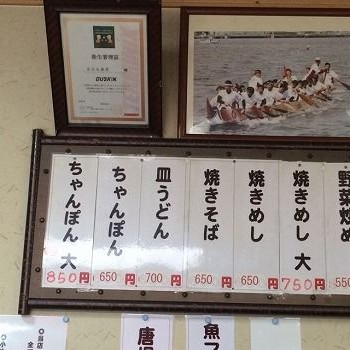 衛生管理店
DUSKIN
ちゃんぽん 大
850円
ちゃんぽん
650円
皿うどん
700円
焼きそば
650円
焼きめし
650円
焼きめし 大
750円
野菜炒め
550
当店
全
小
唐
魚フ